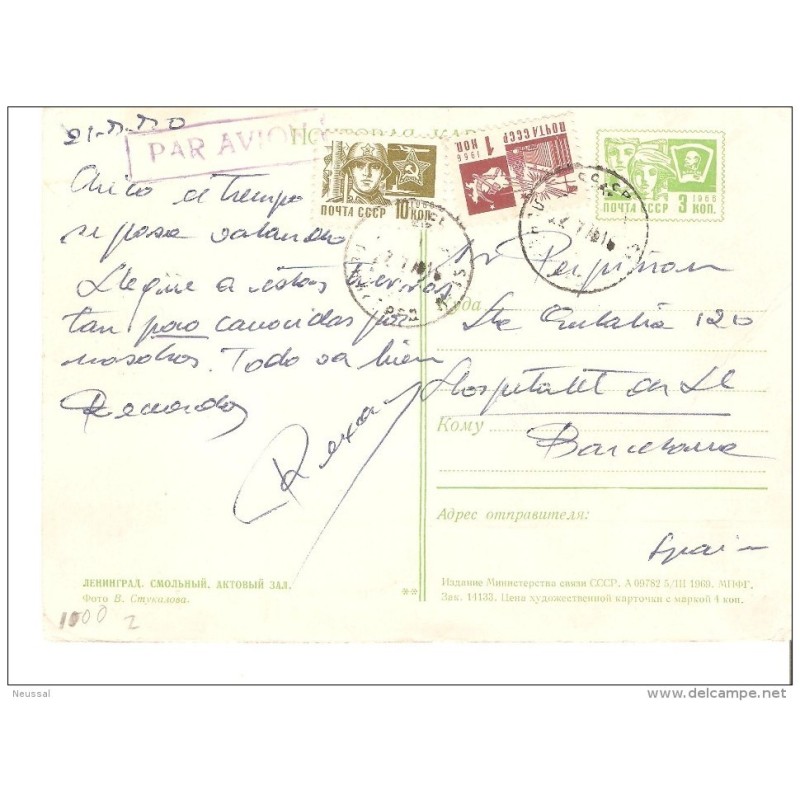 PAR AVION
ПОЧТА СССР 10 КОП.
1966
ПОЧТА СССР
1 КОП.
1966
1966
ПОЧТА СССР 3 КОП.
Chico el tiempo
se pasa volando
Llegue a estas Tierras
tan poco conocidas por
nosotros. Todo va bien
Recuerdos
Sr Perpiñan
Куда
Sta Eulalia 120
Hospitalet de Ll
Кому
Barcelona
Адрес отправителя:
Spain
ЛЕНИНГРАД. СМОЛЬНЫЙ. АКТОВЫЙ ЗАЛ.
Фото В. Стукалова.
Издание Министерства связи СССР. А 09782 5/III 1969. МПФГ.
Зак. 14133. Цена художественной карточки с маркой 4 коп.
1000 2
Neussal
delcampe.net